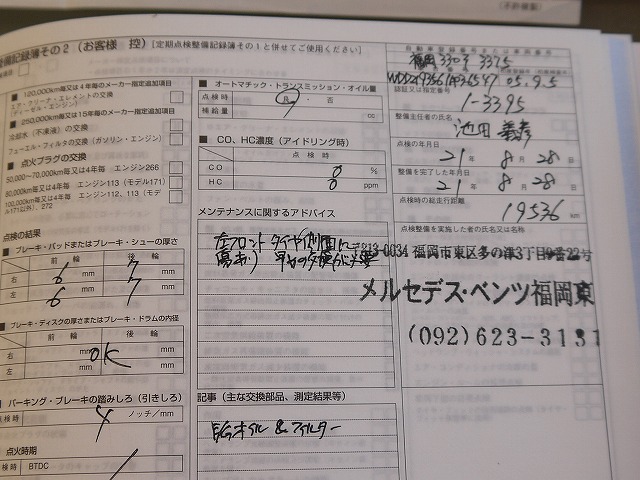 整備記録簿その２（お客様 控）[定期点検整備記録簿その１と併せてご使用ください]
■ 120,000km毎又は４年毎のメーカー指定追加項目
エア・クリーナ・エレメントの交換
（ディーゼル・エンジン）
■ 250,000km毎又は15年毎のメーカー指定追加項目
冷却水（不凍液）の交換
フューエル・フィルタの交換（ガソリン・エンジン）
■ 点火プラグの交換
50,000〜70,000km毎又は4年毎 エンジン266
50,000km毎又は4年毎 エンジン113（モデル171）
100,000km毎又は4年毎 エンジン112、113（モデル171以外）、272
点検の結果
■ ブレーキ・パッドまたはブレーキ・シューの厚さ
前輪 後輪
右 6 mm 7 mm
左 6 mm 7 mm
■ ブレーキ・ディスクの厚さまたはブレーキ・ドラムの内径
前輪 後輪
右 mm mm
OK
左 mm mm
■ パーキング・ブレーキの踏みしろ（引きしろ）
点検時 4 ノッチ/mm
点火時期
点検時 BTDC
■ オートマチック・トランスミッション・オイル
点検時 良・否
補給量 cc
■ CO、HC濃度（アイドリング時）
点検時
CO 0 %
HC 0 ppm
メンテナンスに関するアドバイス
左フロントタイヤ側面に
傷あり 早めの交換が必要
記事（主な交換部品、測定結果等）
オイル&フィルター
自動車登録番号または車両番号
福岡 330 3375
05.9.5
認証又は指定番号
1-3395
整備主任者の氏名
池田 義彦
点検の年月日
21年 8月 28日
整備を完了した年月日
21年 8月 28日
点検時の総走行距離
19536 km
点検整備を実施した者の氏名又は名称
〒813-0034 福岡市東区多の津3丁目9番22号
メルセデス・ベンツ福岡東
(092)623-3131